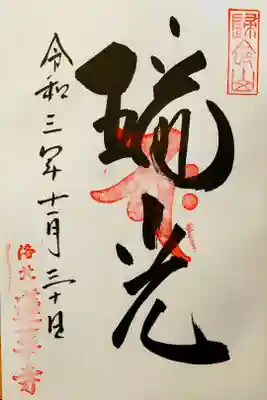 歸命山
瑞光
令和三年十一月三十日
洛北 蓮華寺